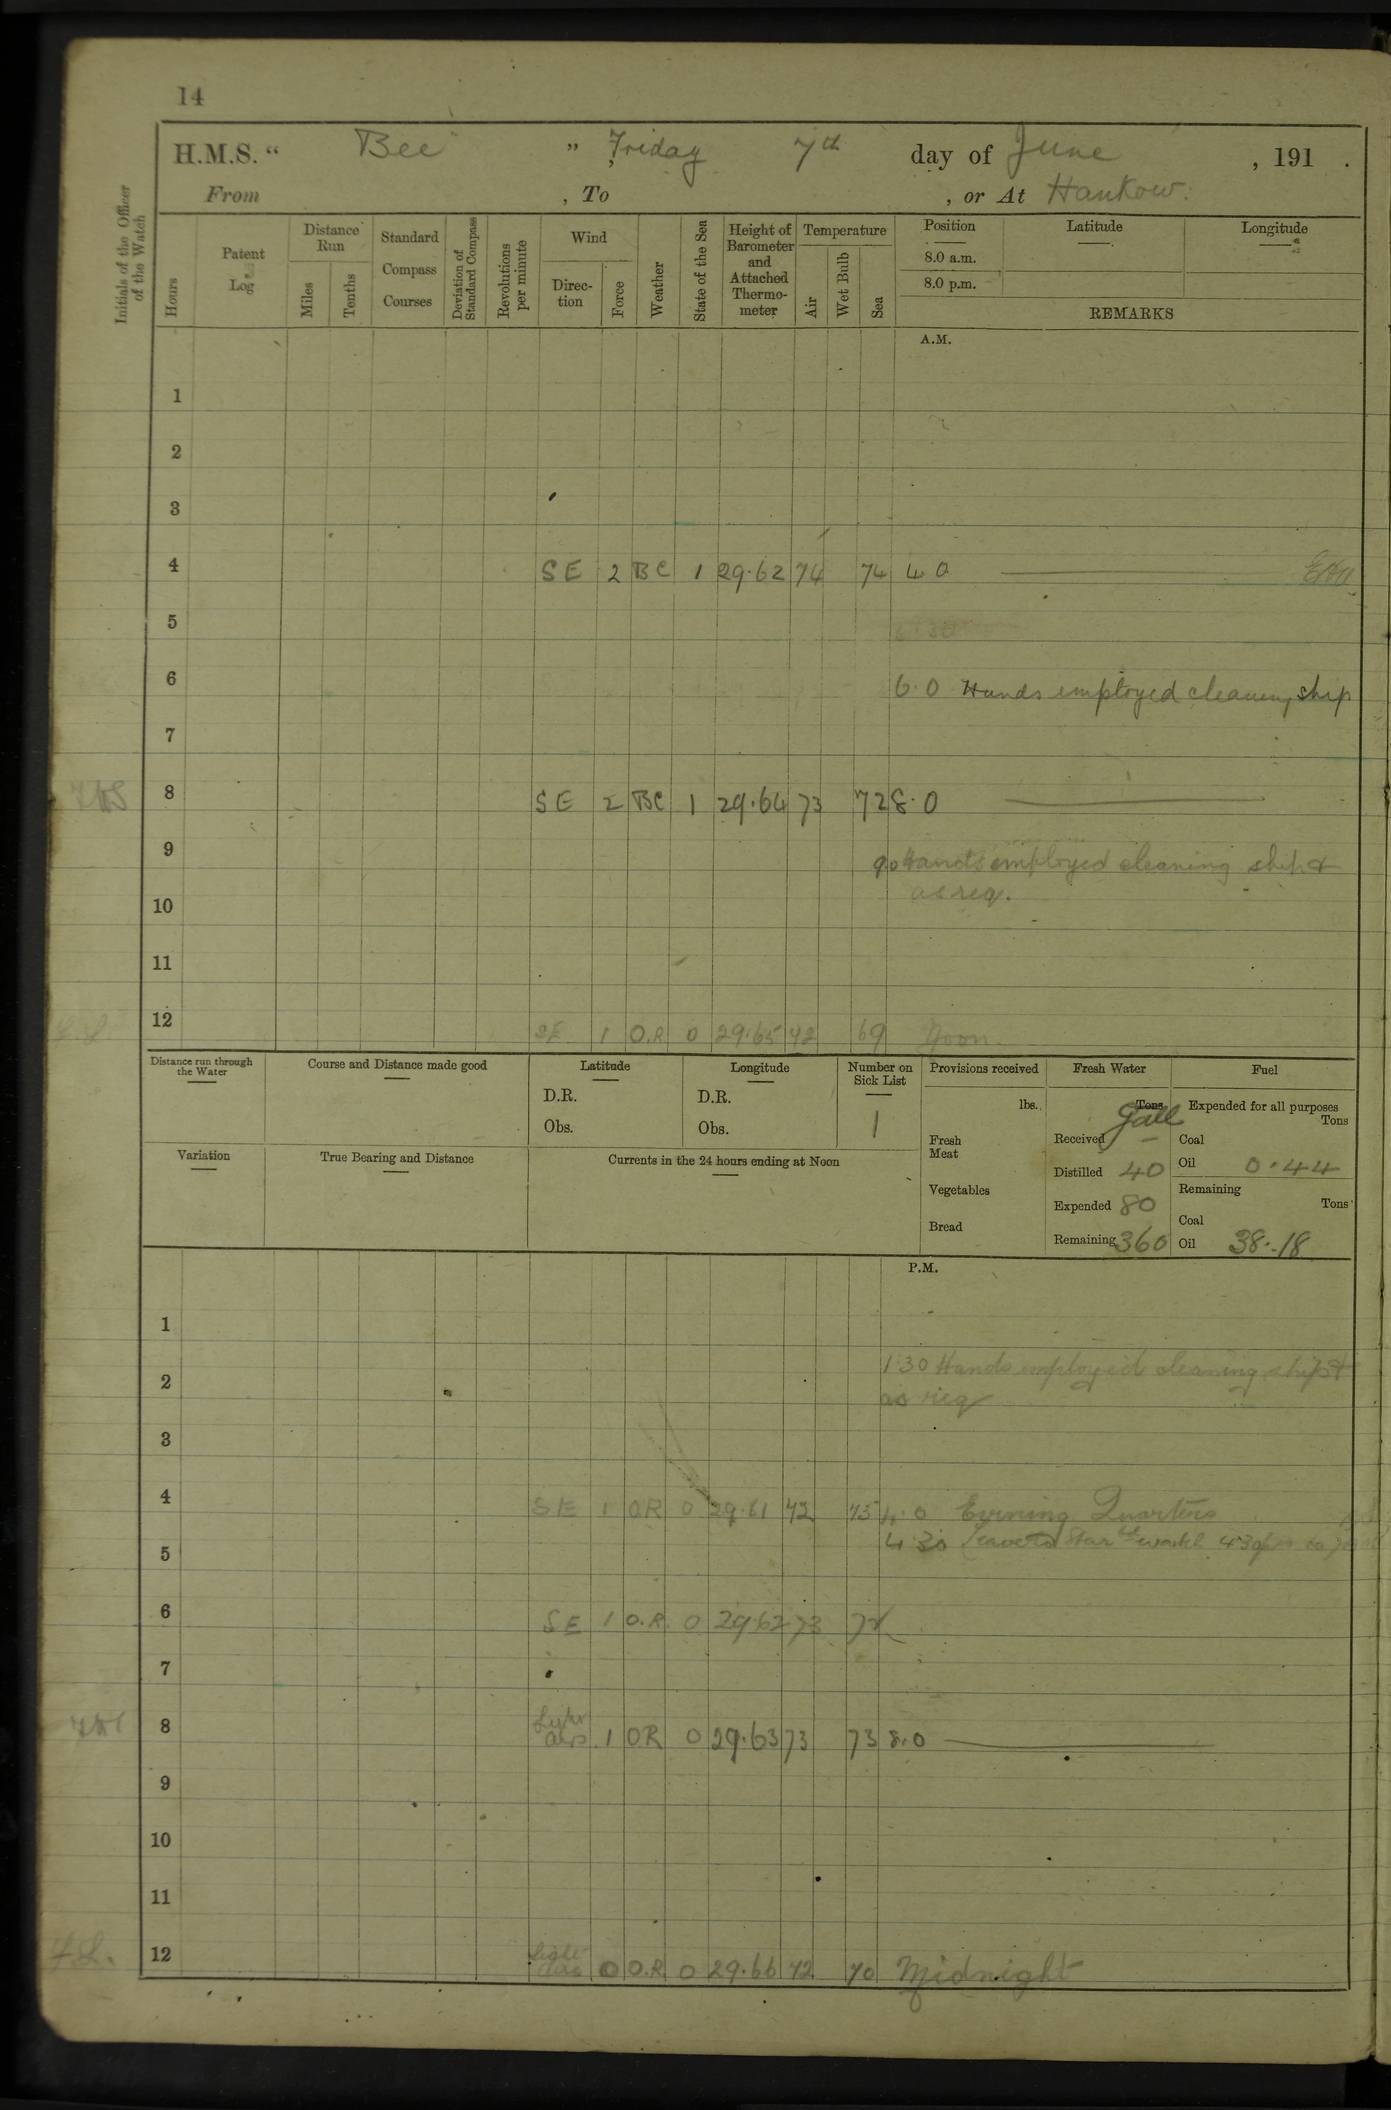 14
H.M.S. “ Bee ” , Friday 7th day of June , 191 .
From , To , or At Hankow.
Initials of the Officer of the Watch
Hours
Patent Log
Distance Run
Miles
Tenths
Standard Compass Courses
Deviation of Standard Compass
Revolutions per minute
Wind
Direction
Force
Weather
State of the Sea
Height of Barometer and Attached Thermometer
Temperature
Air
Wet Bulb
Sea
Position
8.0 a.m.
8.0 p.m.
Latitude
Longitude
REMARKS
A.M.
1
2
3
4 SE 2 BC 1 29.62 74 74 4 0
5
6 6.0 Hands employed cleaning ship
7
8 SE 2 BC 1 29.64 73 72 8.0
9 9.0 Hands employed cleaning ship &
10 as req.
11
12 SE 1 O.R 0 29.65 72 69 Noon
Distance run through the Water
Course and Distance made good
Latitude
D.R.
Obs.
Longitude
D.R.
Obs.
Number on Sick List
1
Provisions received
lbs.
Fresh Meat
Vegetables
Bread
Fresh Water
Tons Gall
Received –
Distilled 40
Expended 80
Remaining 360
Fuel
Expended for all purposes
Tons
Coal
Oil 0.44
Remaining
Tons
Coal
Oil 38.18
Variation
True Bearing and Distance
Currents in the 24 hours ending at Noon
P.M.
1
1.30 Hands employed cleaning ship &
2 as req
3
4 SE 1 OR 0 29.61 72 75 4.0 Evening Quarters
4.30 Leave to Starbd watch 4.30pm to
5
6 SE 1 O.R. 0 29.62 73 72
7
8 Light airs 1 OR 0 29.63 73 73 8.0
9
10
11
F.L. 12 Light airs 0 O.R 0 29.66 72 70 Midnight